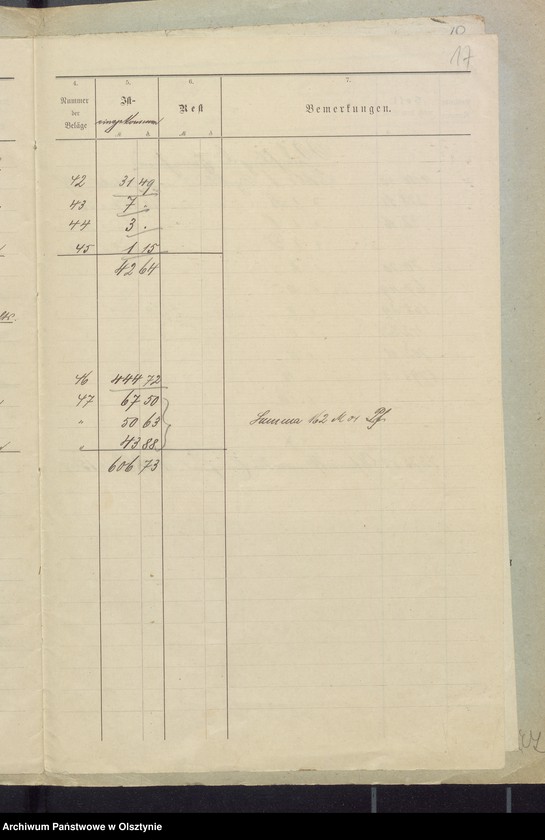 10
17
4. 5. 6. 7.
Nummer der Beläge
Ist-
Rest
Bemerkungen.
M ₰ M ₰
42 31 49
43 7 -
44 3 -
45 1 15
42 64
46 444 72
47 67 50
" 50 63
" 43 88
Summa 162 M 01 Pf.
606 73
Archiwum Państwowe w Olsztynie